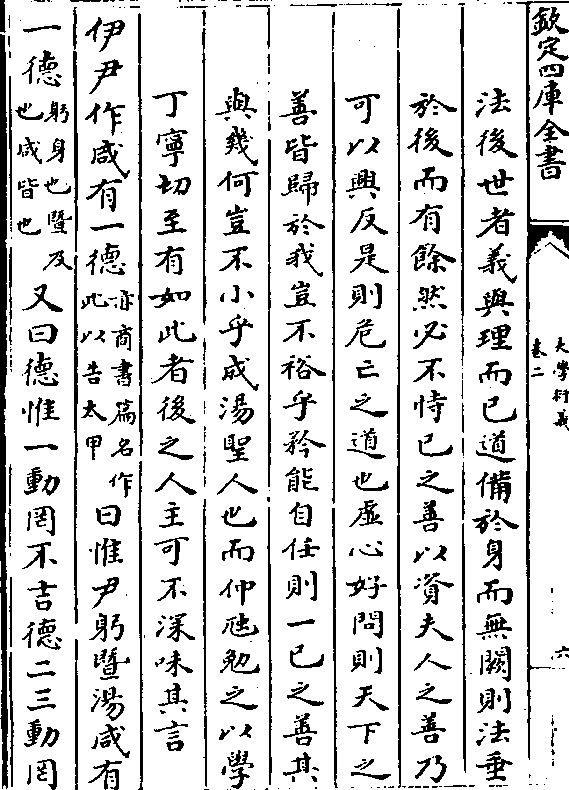 欽定四庫全書
大學衍義
卷二
六
法後世者義與理而已道備於身而無闕則法垂
於後而有餘然必不恃已之善以資夫人之善乃
可以興反是則危亡之道也虛心好問則天下之
善皆歸於我豈不裕乎矜能自任則一已之善其
與幾何豈不小乎成湯聖人也而仲虺勉之以學
丁寧切至有如此者後之人主可不深味其言
伊尹作咸有一德亦商書篇名作此以告太甲曰惟尹躬暨湯咸有
一德躬身也暨及也咸皆也又曰德惟一動罔不吉德二三動罔